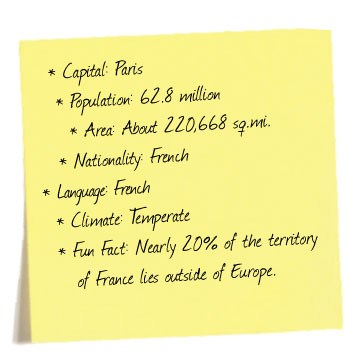 * Capital: Paris
* Population: 62.8 million
* Area: About 220,668 sq.mi.
* Nationality: French
* Language: French
* Climate: Temperate
* Fun Fact: Nearly 20% of the territory
of France lies outside of Europe.